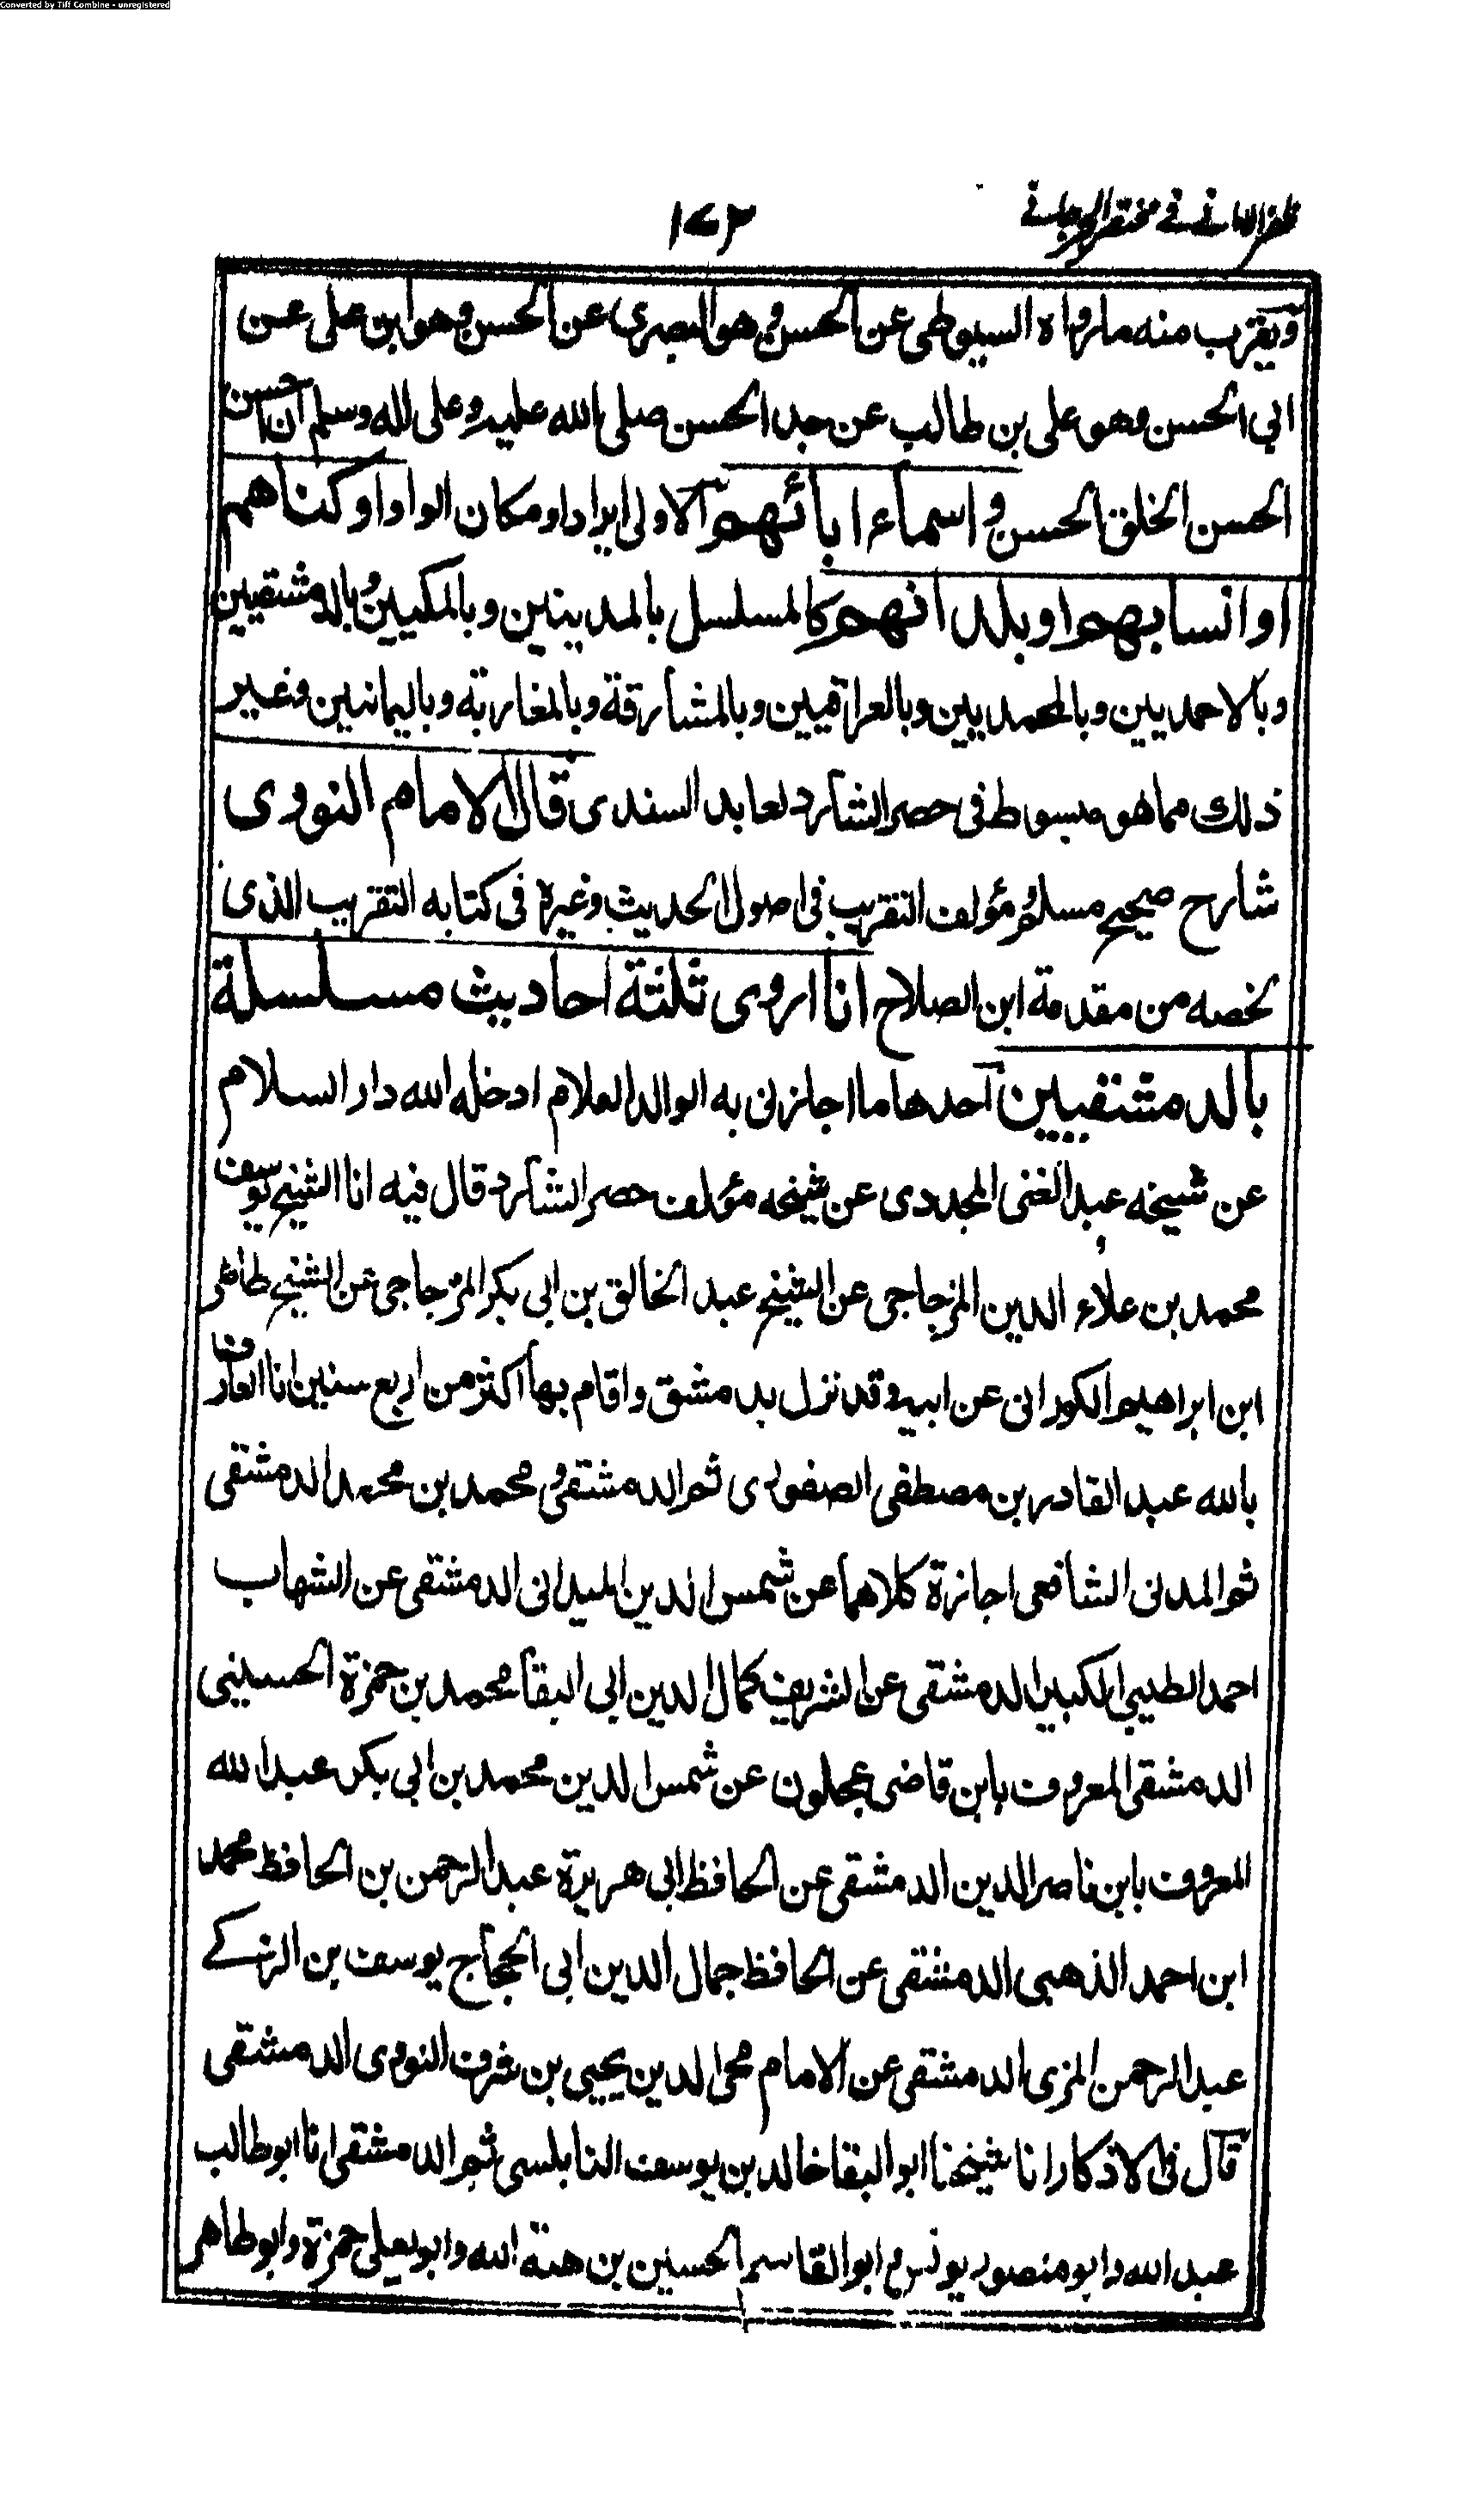 Converted by Tiff Combine - unregistered
ظفر الامانى فى مختصر الجرجانى
١٧٣
ويقرب منه ما رواه السيوطى عن الحسن وهو البصرى عن الحسن وهو ابن على عن
ابى الحسن وهو على بن طالب عن جد الحسن صلى الله عليه وعلى اله وسلم ان احسن
الحسن الخلق الحسن و اسماء ابائهم الاولى ايراد او مكان الواو او كناهم
او انسابهم او بلدانهم كالمسلسل بالمدينين وبالمكيين و بالدمشقيين
وبالاحمديين وبالمحمديين وبالعراقيين وبالمشارقة وبالمغاربة وباليمانيين وغير
ذلك مما هو مبسوط فى حصر الشارد لعابد السندى قال الامام النووى
شارح صحيح مسلم و مؤلف التقريب فى اصول الحديث وغيره فى كتابه التقريب الذى
لخصه من مقدمة ابن الصلاح انا اروى ثلثة احاديث مسلسلة
بالدمشقيين احدها ما اجازنى به الوالد العلام ادخله الله دار السلام
عن شيخه عبد الغنى المجددى عن شيخه مؤلف حصر الشارد قال فيه انا الشيخ يوسف
محمد بن علاء الدين المزجاجى عن الشيخ عبد الخالق بن ابى بكر المزجاجى عن الشيخ طاهر
ابن ابراهيم الكورانى عن ابيه وقد نزل بدمشق واقام بها اكثر من اربع سنين انا العارف
بالله عبد القادر بن مصطفى الصفورى ثم الدمشقى و محمد بن محمد الدمشقى
ثم المدنى الشافعى اجازة كلاهما عن شمس الدين الميدانى الدمشقى عن الشهاب
احمد الطيبى الكبير الدمشقى عن الشريف كمال الدين ابى البقا محمد بن حمزة الحسينى
الدمشقى المعروف بابن قاضى عجلون عن شمس الدين محمد بن ابى بكر عبد الله
المعروف بابن ناصر الدين الدمشقى عن الحافظ ابى هريرة عبد الرحمن بن الحافظ محمد
ابن احمد الذهبى الدمشقى عن الحافظ جمال الدين ابى الحجاج يوسف بن الزكے
عبد الرحمن المزى الدمشقى عن الامام محى الدين يحيى بن شرف النووى الدمشقى
قال فى الاذكار انا شيخنا ابو البقا خالد بن يوسف النابلسى ثم الدمشقى انا ابو طالب
عبد الله وابو منصور يونس و ابو القاسم الحسين بن هبة الله وابو يعلى حمزة وابو طاهر